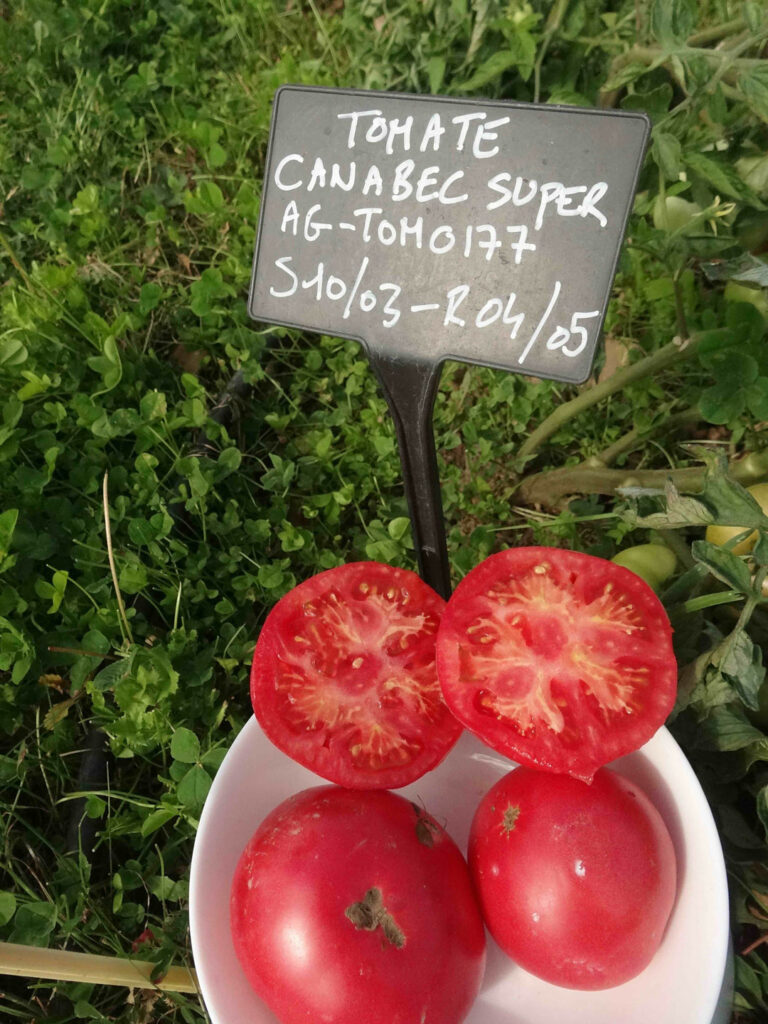 TOMATE
CANABEC SUPER
AG-TOM0177
S10/03-R04/05